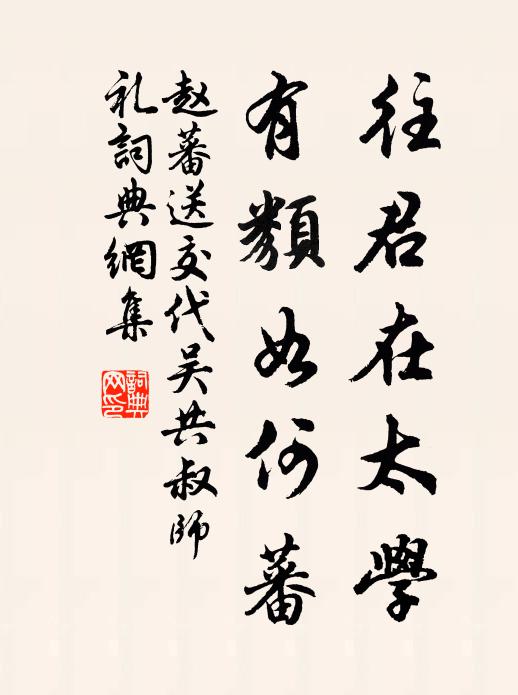 往君在太學
有類如何蕃
赵蕃送交代吴共叔師
礼詞典網集
詞典網印